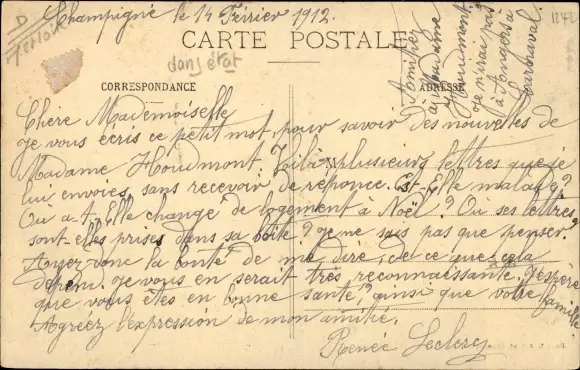 Champigné le 14 Février 1912.
CARTE POSTALE
dans état
CORRESPONDANCE
ADRESSE
à Madame
Houdmont
je n'irai pas
à Angers à
Carnaval.
Chère Mademoiselle
Je vous écris ce petit mot, pour savoir des nouvelles de
Madame Houdmont. Voilà plusieurs lettres que je
lui envoies, sans recevoir de réponce. Est-Elle malade?
Ou a-t-Elle changé de logement à Noël? Ou ses lettres
sont-elles prises dans sa boîte? Je ne sais pas que penser.
Ayez donc la bonté de me dire, de ce que cela
dépend. Je vous en serait très reconnaissante. J'espère
que vous êtes en bonne santé, ainsi que votre famille.
Agréez l'expression de mon amitié.
Renée Leclerc